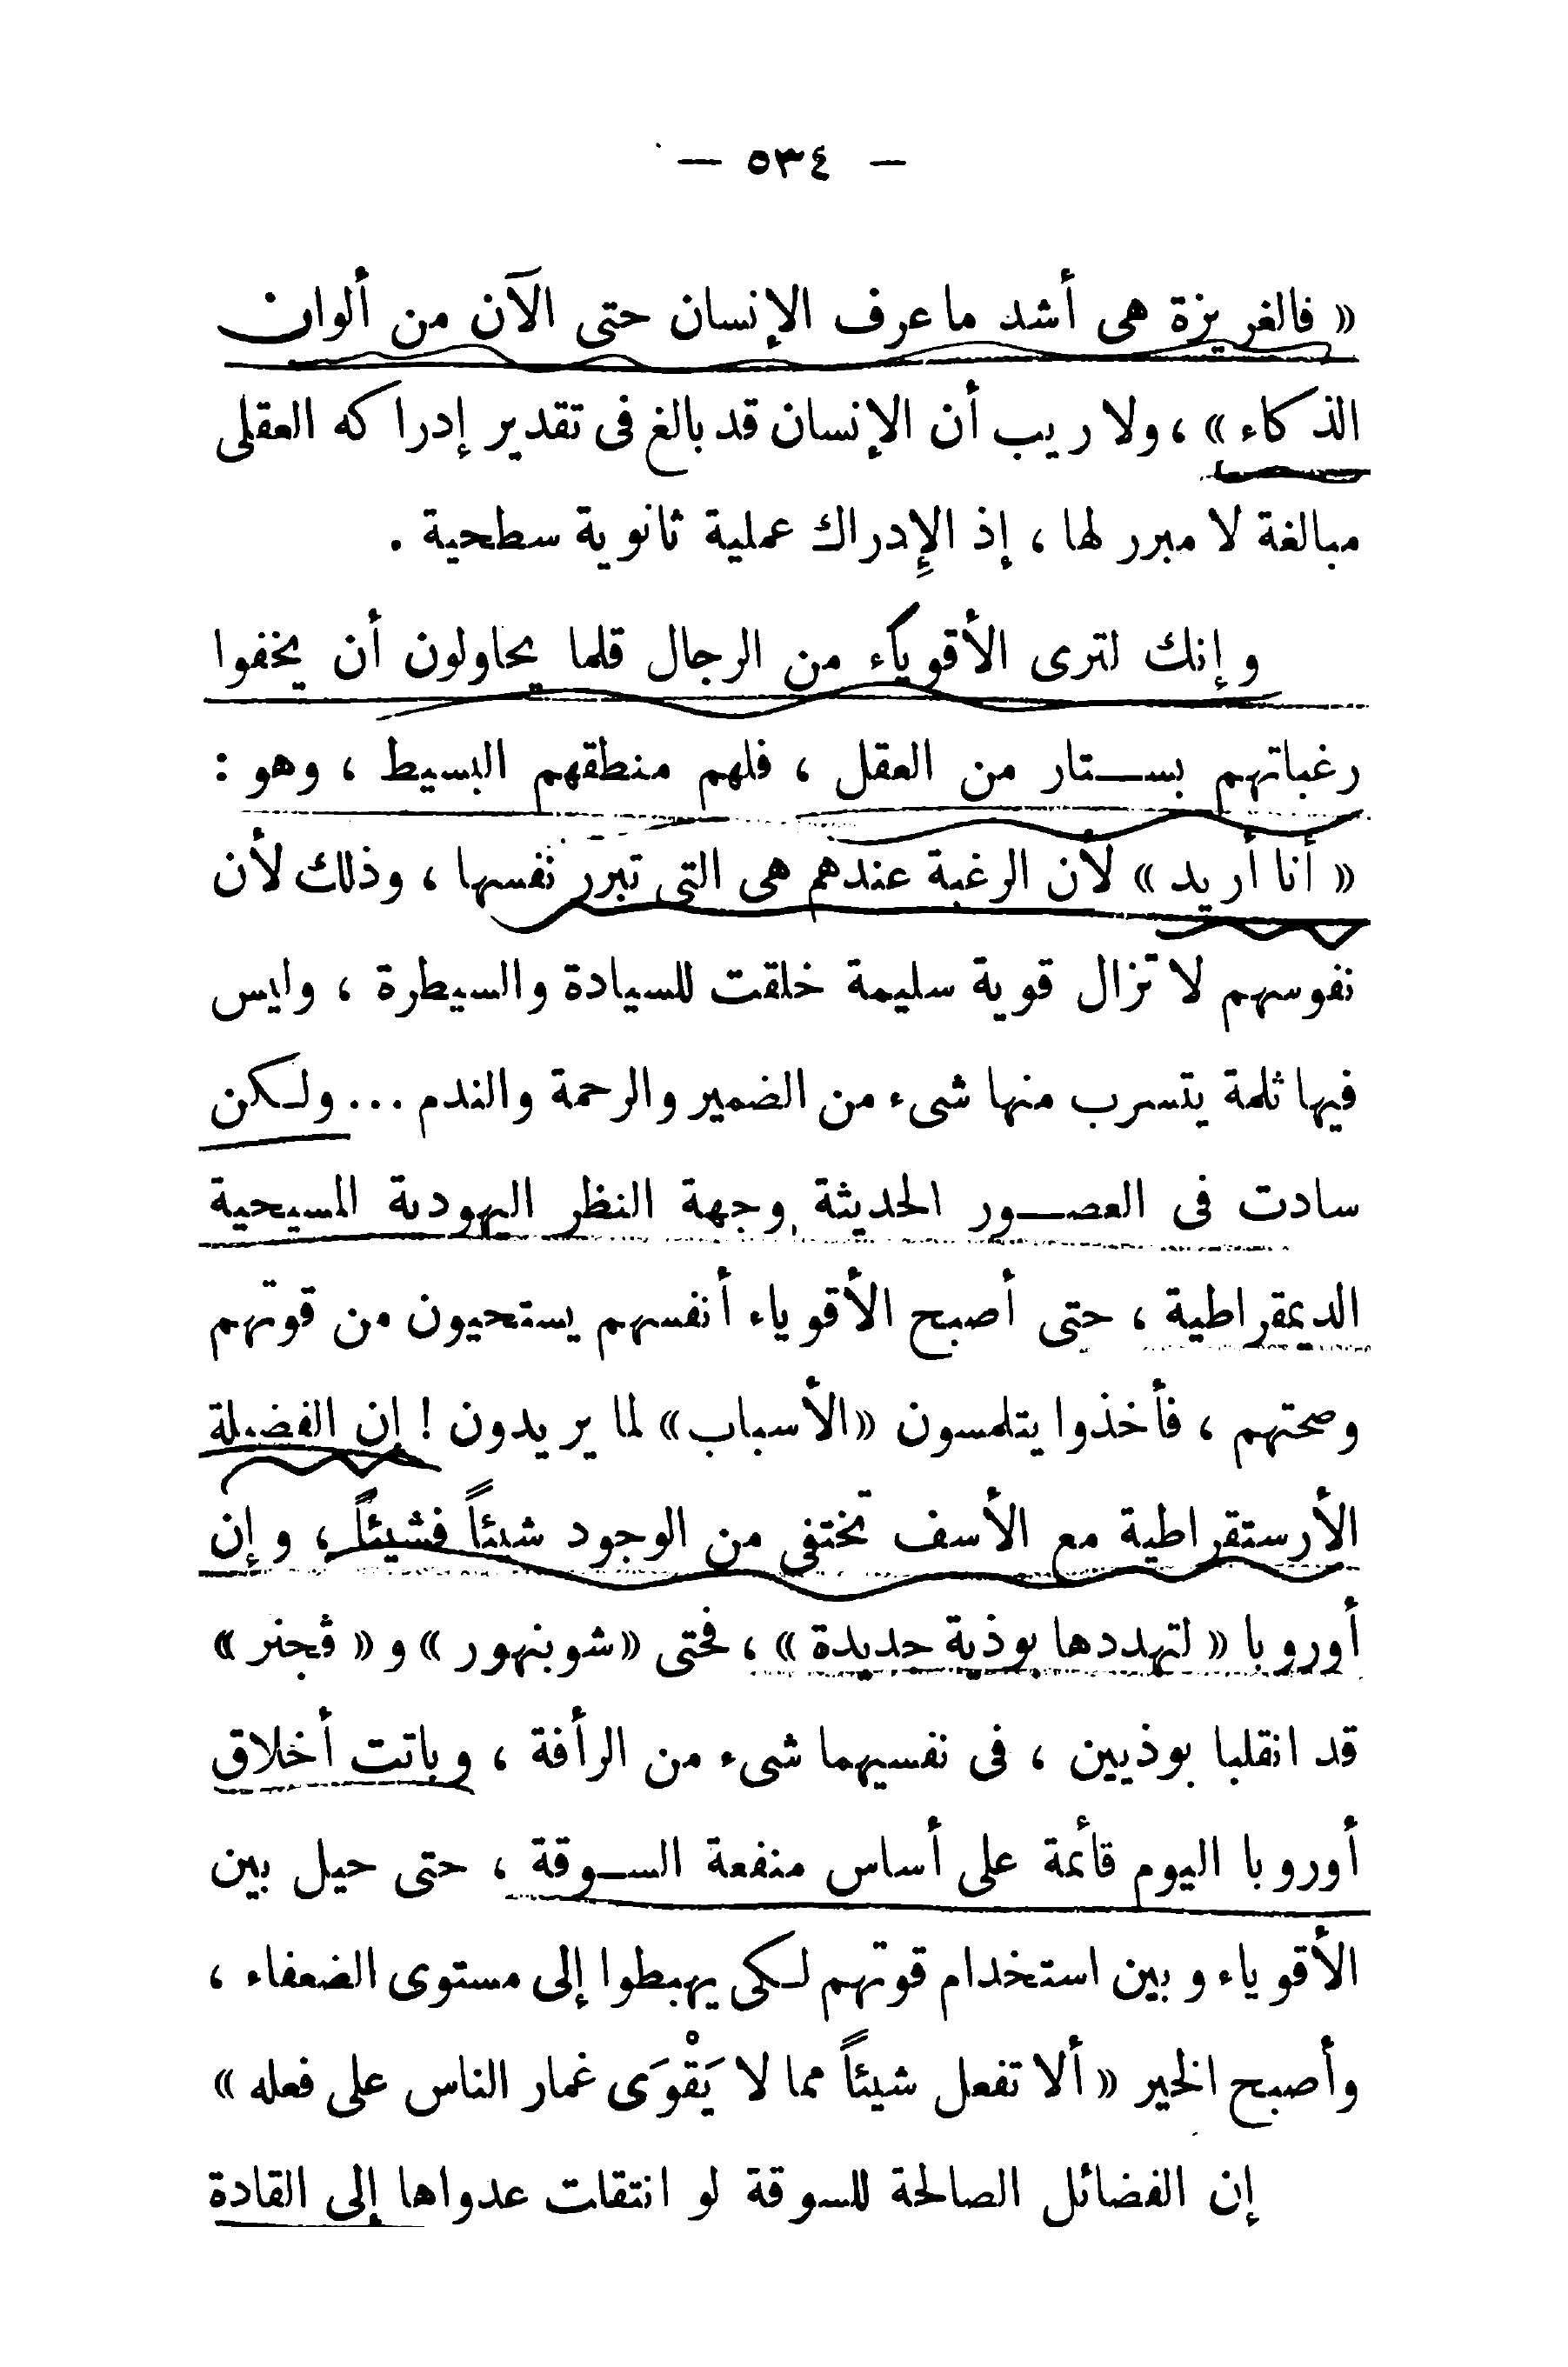 — ٥٣٤ —
« فالغريزة هى أشد ما عرف الإنسان حتى الآن من ألوان
الذكاء » ، ولا ريب أن الإنسان قد بالغ فى تقدير إدراكه العقلى
مبالغة لا مبرر لها ، إذ الإِدراك عملية ثانوية سطحية .
وإنك لترى الأقوياء من الرجال قلما يحاولون أن يخفوا
رغباتهم بستار من العقل ، فلهم منطقهم البسيط ، وهو :
« أنا أريد » لأن الرغبة عندهم هى التى تبرر نفسها ، وذلك لأن
نفوسهم لا تزال قوية سليمة خلقت للسيادة والسيطرة ، وليس
فيها ثلمة يتسرب منها شىء من الضمير والرحمة والندم ... ولكن
سادت فى العصور الحديثة وجهة النظر اليهودية المسيحية
الديمقراطية ، حتى أصبح الأقوياء أنفسهم يستحيون من قوتهم
وصحتهم ، فأخذوا يتلمسون « الأسباب » لما يريدون ! إن الفضيلة
الأرستقراطية مع الأسف تختفى من الوجود شيئاً فشيئاً ، وإن
أوروبا « لتهددها بوذية جديدة » ، فحتى « شوبنهور » و « ڤجنر »
قد انقلبا بوذيين ، فى نفسيهما شىء من الرأفة ، وباتت أخلاق
أوروبا اليوم قائمة على أساس منفعة السوقة ، حتى حيل بين
الأقوياء وبين استخدام قوتهم لكى يهبطوا إلى مستوى الضعفاء ،
وأصبح الخير « ألا تفعل شيئاً مما لا يَقْوَى غمار الناس على فعله »
إن الفضائل الصالحة للسوقة لو انتقلت عدواها إلى القادة